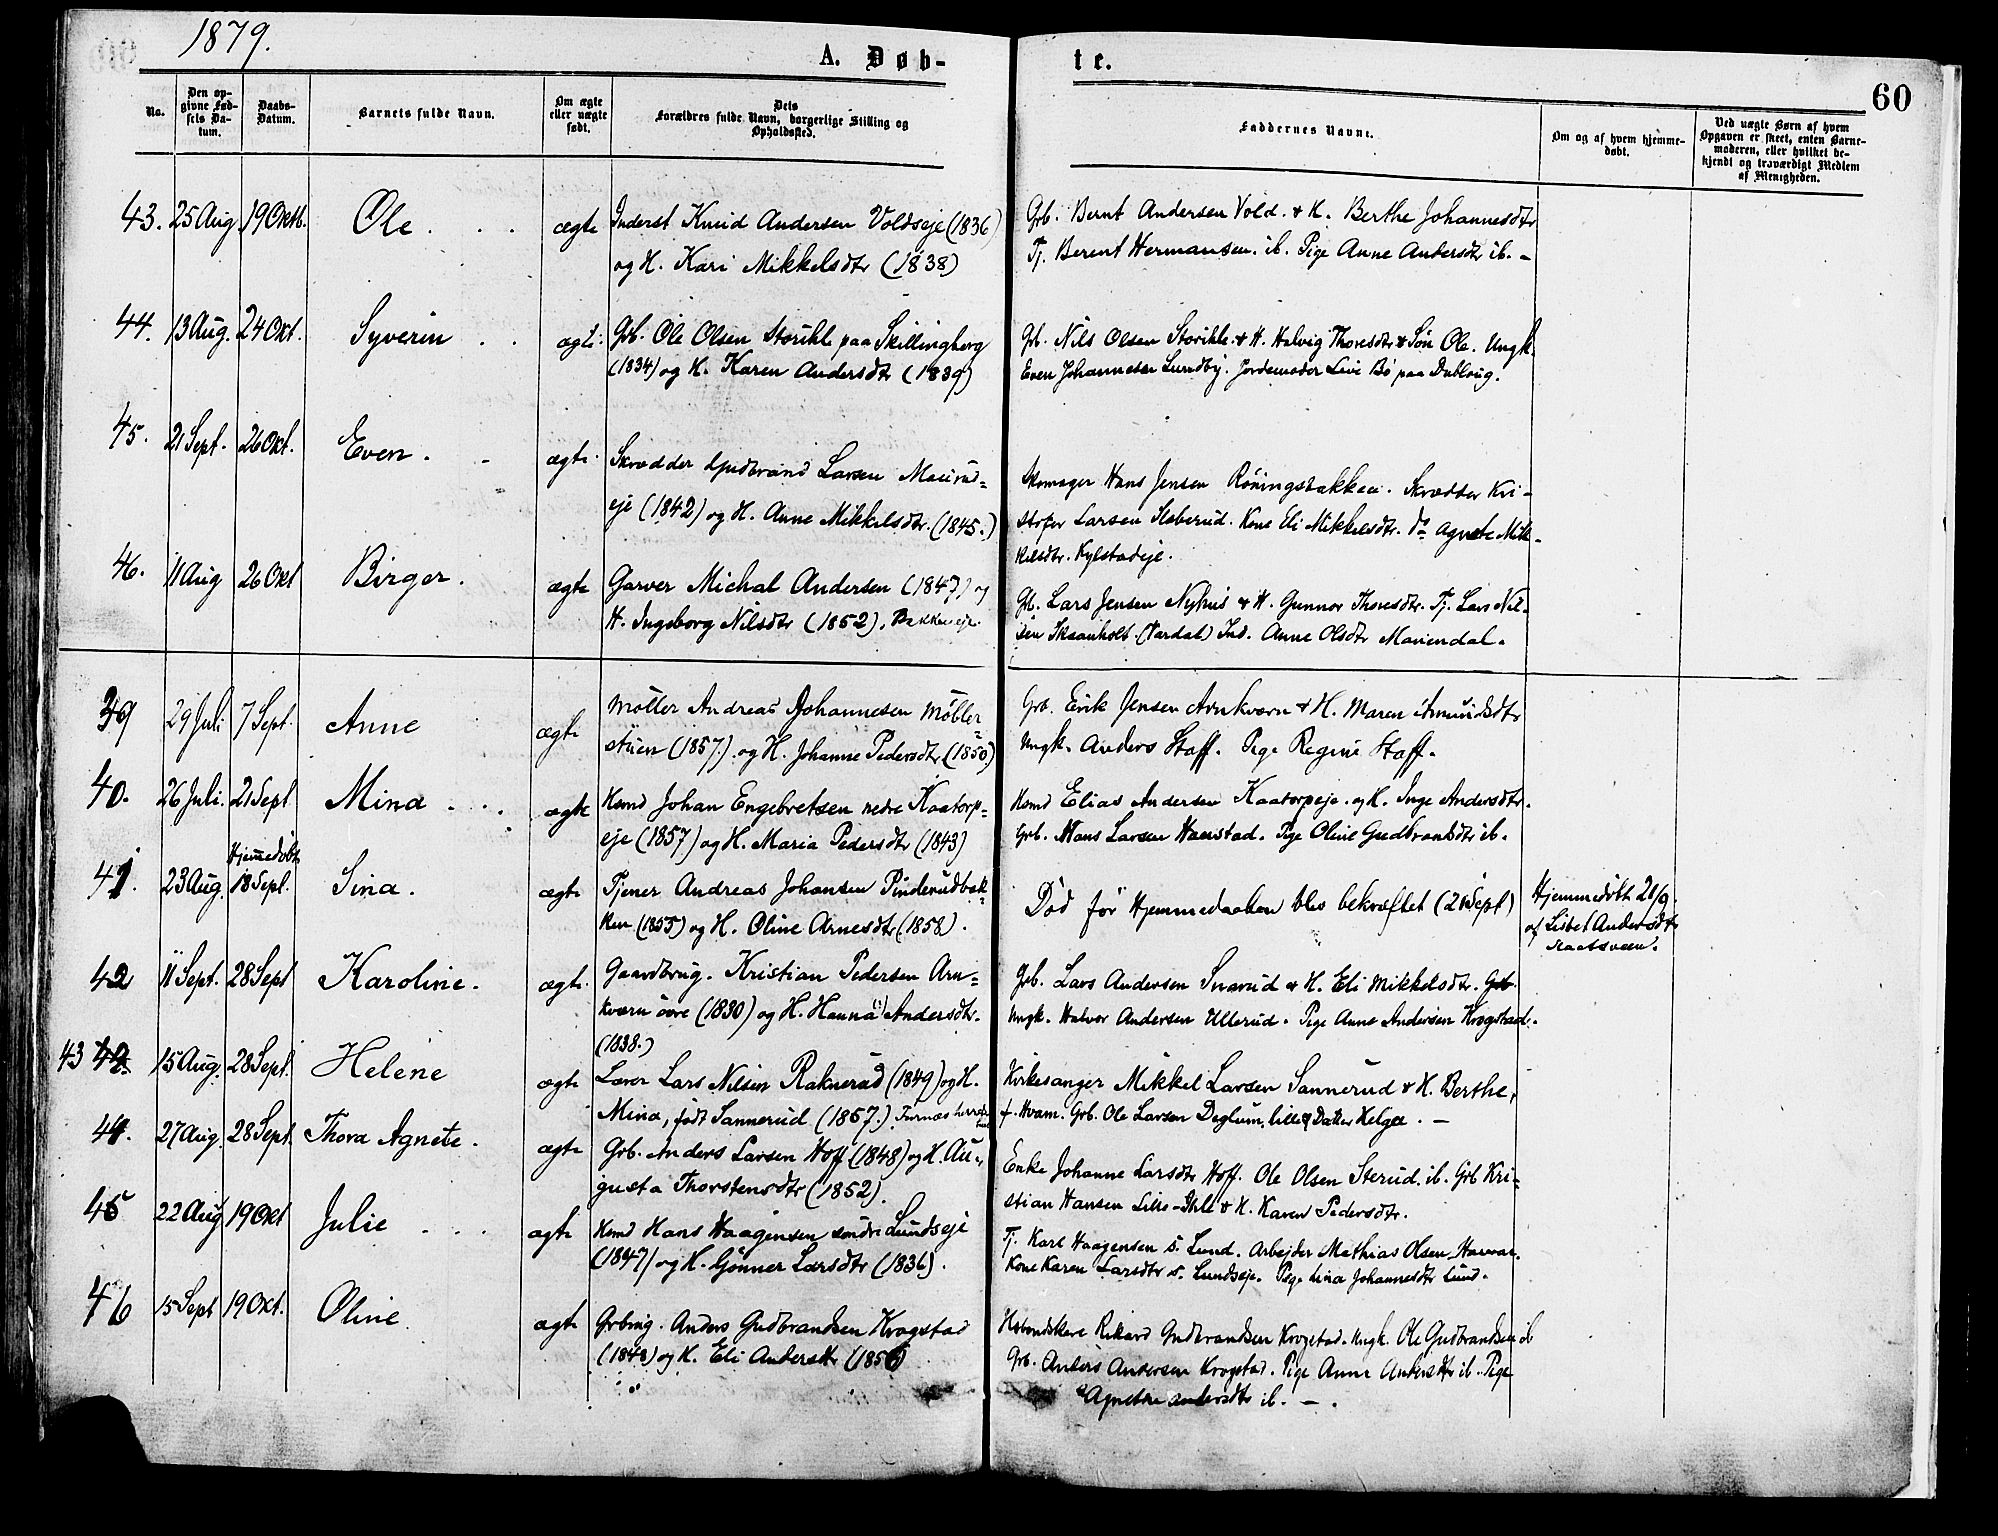 1879.
A. Døb-
te.
60
No.
Den op-
givne Fød-
sels Da-
tum.
Daabs-
Datum.
Barnets fulde Navn.
Om ægte
eller uægte
født.
Dets
Forældres fulde Navn, borgerlige Stilling og
Opholdssted.
Faddernes Navne.
Om og af hvem hjemme-
døbt.
Ved uægte Børn af hvem
Opgaven er skeet, enten Barne-
moderen, eller hvilket be-
kjendt og troværdigt Medlem
af Menigheden.
43. 25 Aug 19 Oktb. Ole . . . ægte Inderst Knud Andersen Voldseje (1836)
og H. Kari Mikkelsdtr (1838)
Grb. Bernt Andersen Vold. & H. Berthe Johannesdtr
Tj. Berent Hermansen. ib. Pige Anne Andersdtr ib. -
44. 13 Aug. 24 Okt. Syverin . . ægte Grb. Ole Olsen Storihle paa Skillingberg
(1834) og H. Karen Andersdtr (1839)
Grb. Nils Olsen Storihle & H. Helvig Thoresdtr & Søn Ole. Ungk.
Even Johannesen Lundby. Jordemoder Live Bø paa Dubloug.
45. 21 Sept. 26 Okt. Even . - ægte Skrædder Gudbrand Larsen Maurud-
eje (1842) og H. Anne Mikkelsdtr. (1845.)
Skomager Hans Jensen Röningsbakken. Skrædder Kri-
stofer Larsen Slaberud. Kone Eli Mikkelsdtr. do Agnete Mik-
kelsdtr. Kylstadeje.
46. 11 Aug 26 Okt Birger. ægte Garver Michal Andersen (1847) og
H. Ingeborg Nilsdtr (1852), Bakkeneje.
Grb. Lars Jensen Nyhus & H. Gunnor Thoresdtr. Tj. Lars Nil-
sen Skaanholt (Vardal) Ind. Anne Olsdtr Mariendal.
39 29 Juli 7 Sept. Anne ægte Möller Andreas Johannesen Möller-
stuen (1857.) og H. Johanne Pedersdtr (1850)
Grb. Erik Jensen Arnkværn & H. Maren Amundsdtr
Ungk. Anders Staff. Pige Regine Staff.
40. 26 Juli. 21 Sept Mina . . . ægte Hsmd Johan Engebretsen nedre Kaatorp-
eje (1857) og H. Maria Pedersdtr (1843)
Hsmd Elias Andersen Kaatorpeje. og H. Inge Andersdtr.
Grb. Hans Larsen Hamstad. Pige Oline Gudbrandsdtr ib.
Hjemmedöbt
41. 23 Aug. 18 Sept. Sina. ægte Tjener Andreas Johansen Pinderudbak-
ken (1855) og H. Oline Arnesdtr (1858).
Död för Hjemmedaaben blev bekræftet (21 Sept)
Hjemmedöbt 21/9.
af Lisbet Andersdtr
42 11 Sept. 28 Sept Karoline. ægte. Gaardbrug. Kristian Pedersen Arn-
kværn övre (1830) og H. Hanna (?) Andersdtr.
(1838.)
Grb. Lars Andersen Snarud & H. Eli Mikkelsdtr. Grb.
Ungk. Halvor Andersen Ullerud. Pige Anne Andersen Krogstad.
43 42. 15 Aug. 28 Sept. Helene ægte Lærer Lars Nilsen Raknerud (1849) og H.
Mina, født Sannerud (1857.)
Kirkesanger Mikkel Larsen Sannerud & H. Berthe,
f. Hvam. Grb. Ole Larsen Deglum, lille & Datter Helga. -
44. 27 Aug. 28 Sept. Thora Agnete. ægte Grb. Anders Larsen Hoff (1848) og H. Au-
gusta Thorstensdtr (1852).
Enke Johanne Larsdtr Hoff. Ole Olsen Sterud. ib. Grb Kri-
stian Hansen Lille-Ihle & H. Karen Pedersdtr.
45 22 Aug 19 Okt Julie . . . ægte Hsmd Hans Haagensen søndre Lundseje
(1847) og H. Gönner Larsdtr (1836).
Tj. Karl Haagensen s. Lund. Arbejder Mathias Olsen
Kone Karen Larsdtr s. Lundseje. Pige Lina Johannesdtr Lund.
46 15 Sept 19 Okt. Oline. ægte Grbrug. Anders Gudbrandsen Krogstad
(1848) og H. Eli Andersdtr (1856)
Rikard Gudbrandsen Krogstad. Ungk. Ole Gudbrandsen ib
Grb. Anders Andersen Krogstad. Pige Anne Andersdtr ib. Pige
Agnethe Andersdtr ib. - .